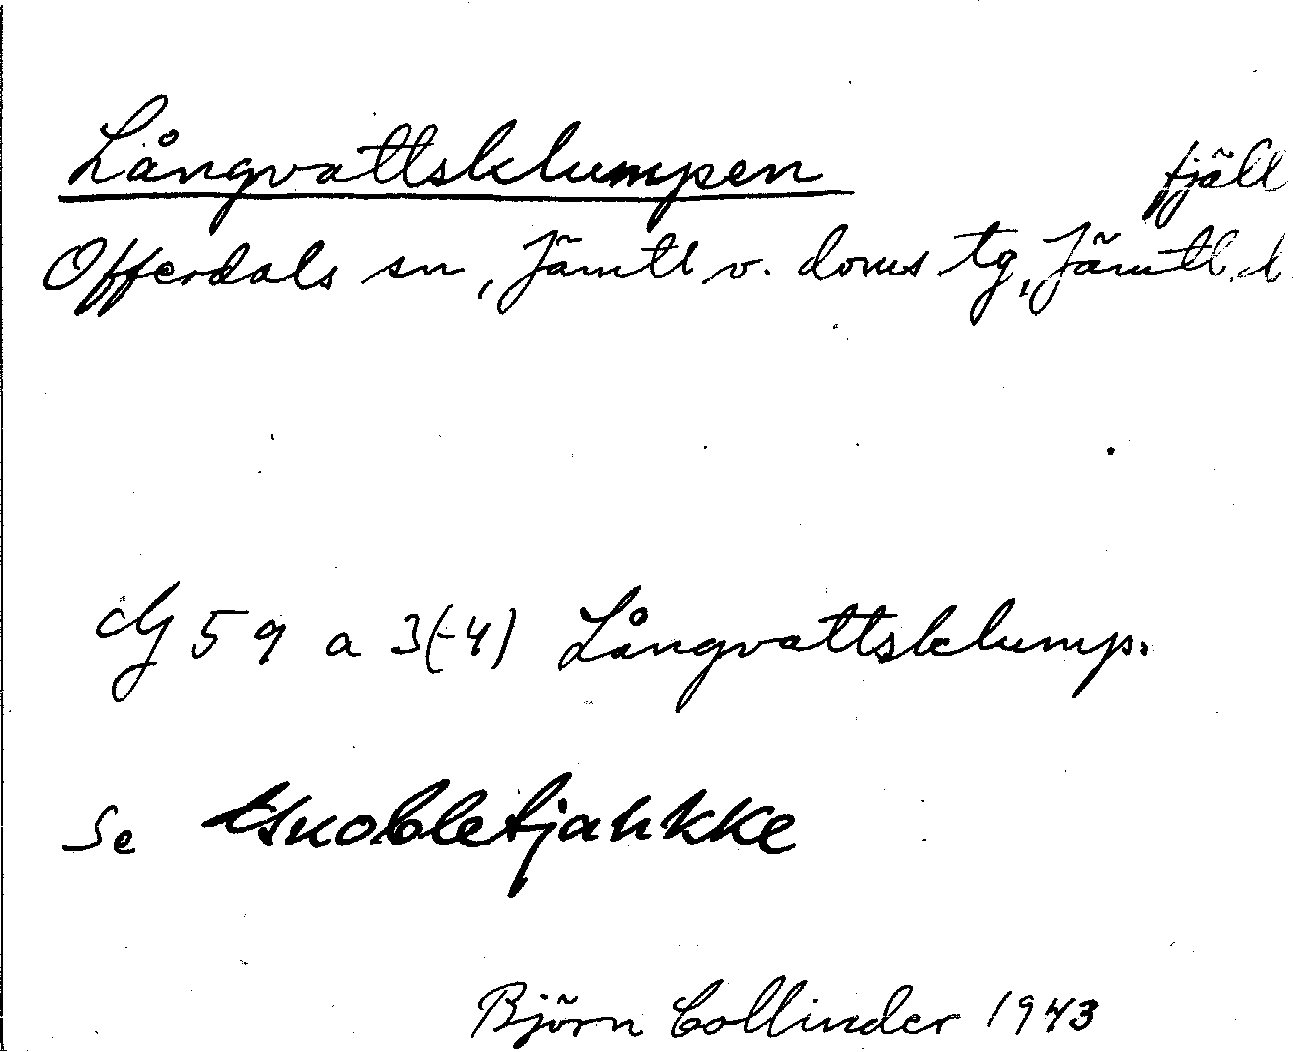 Långvattsklumpen fjäll
Offerdals sn, Jämtl v. doms tg, Jämtl. l
dg 59 a 3(-4) Långvattsklump.
Se
Björn Collinder 1943